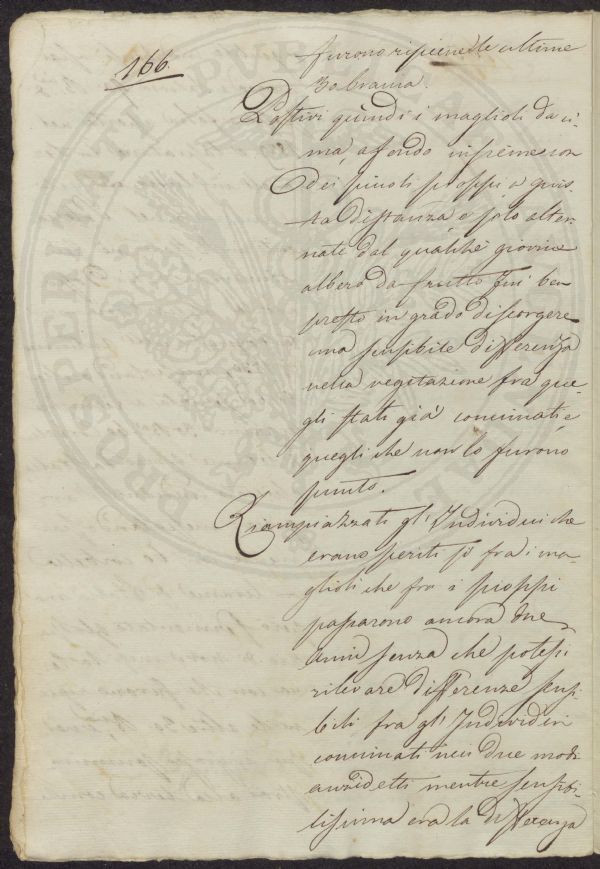 166.
furono ripiene le ultime
30 brama.
Postivi quindi i maglioli da ci-
ma, a fondo insieme con
dei piccoli pioppi a giu-
sta distanza, e solo alter-
nati dal qualche giovine
albero da frutto fui ben
presto in grado di scorgere
una sensibile differenza
nella vegetazione fra que-
gli stati già concimati, e
quegli che non lo furono
punto.
Rimpiazzati gl'Individui che
erano periti sì fra i ma-
glioli che fra i pioppi
passarono ancora due
anni senza che potessi
rilevare differenze sensi-
bili fra gl'Individui
concimati nei due modi
anzidetti mentre sensibi-
lissima era la differenza
PROSPERITATI PVB